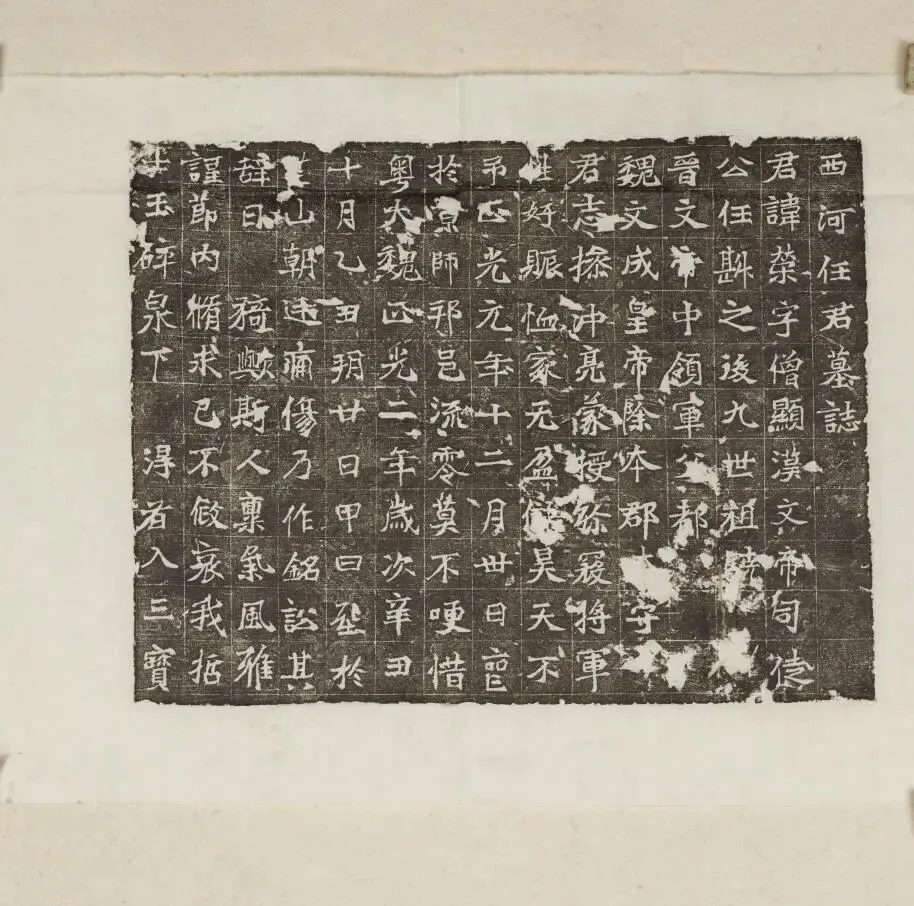 西河任君墓誌
君諱榮字僧顯漢文帝司徒
公任斟之後九世祖
晉文帝中領軍父都
魏文成皇帝除本郡太守
君志操沖亮蒙授綏寇將軍
性好賑恤家无盈儲昊天不
弔正光元年十二月卅日
於京師邦邑流零莫不哽惜
粵大魏正光二年歲次辛丑
十月乙丑朔廿日甲日㘴於
山朝逵痛傷乃作銘訟其
辞曰 猗歟斯人稟氣風雅
謹節內脩求己不㑀哀我哲
士玉碎泉下 淂者入三寶